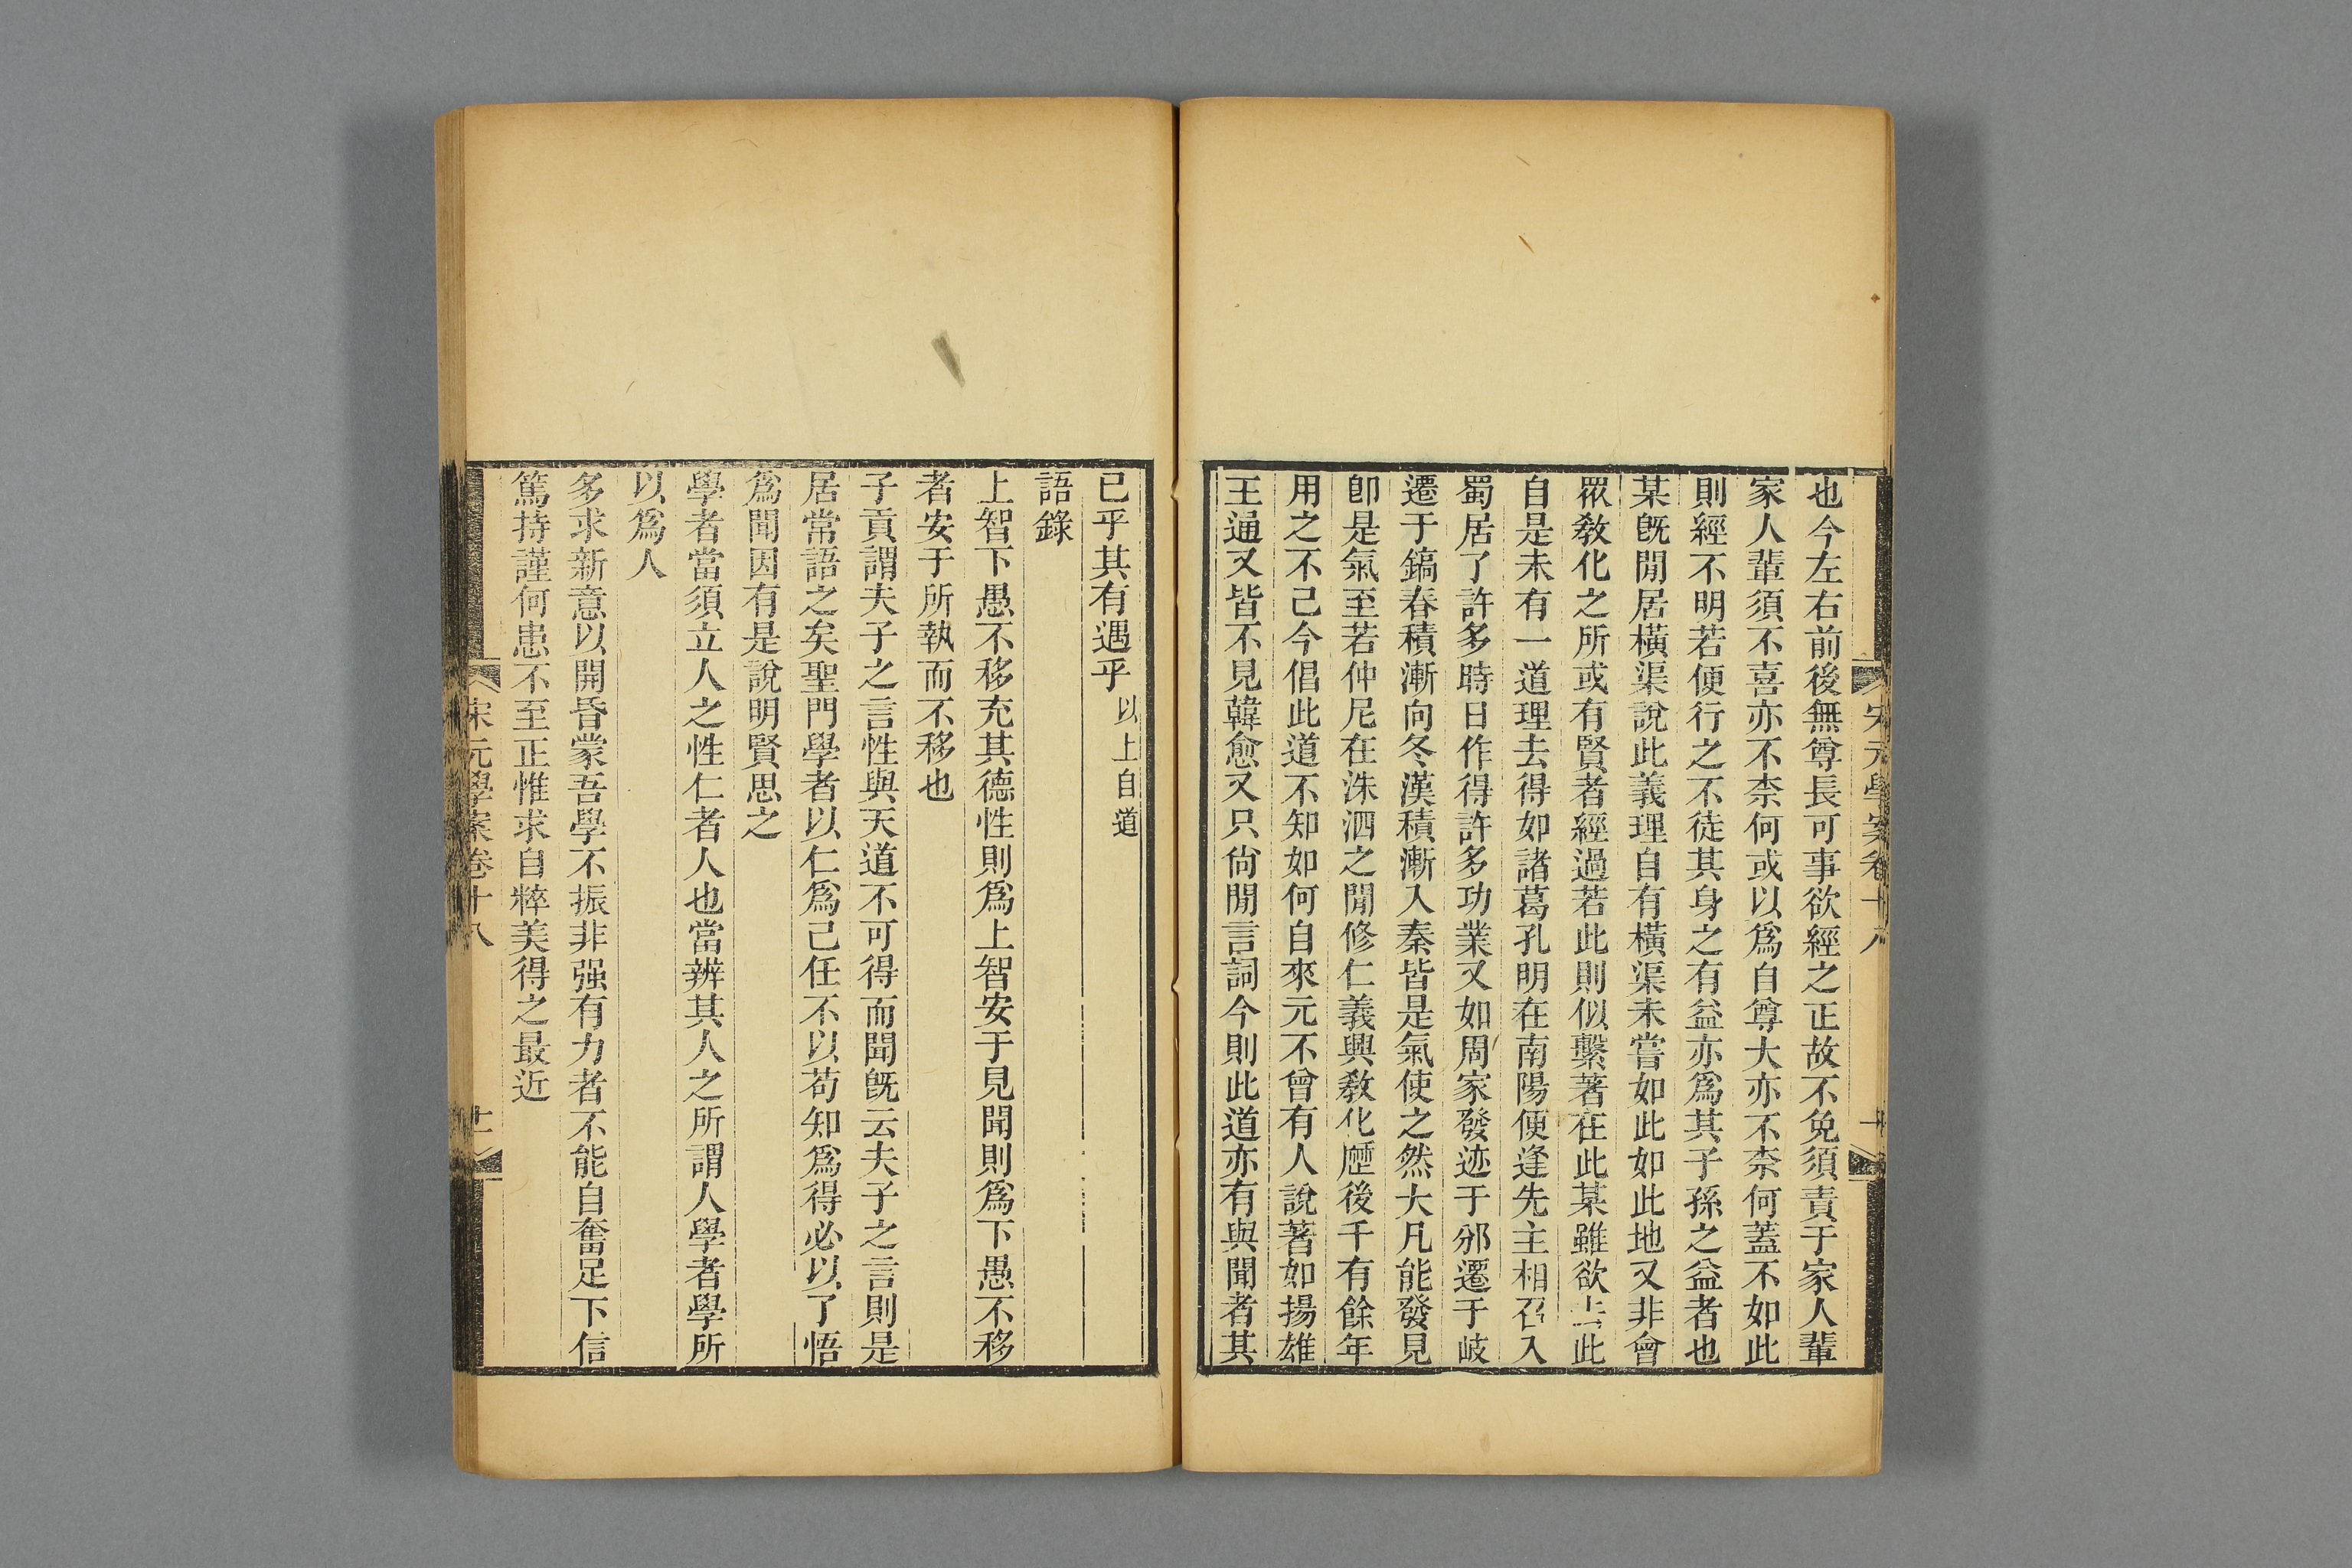 也今左右前後無尊長可事欲經之正故不免須責于家人輩
家人輩須不喜亦不柰何或以爲自尊大亦不柰何蓋不如此
則經不明若便行之不徒其身之有益亦爲其子孫之益者也
某旣閒居橫渠說此義理自有橫渠未嘗如此如此地又非會
眾敎化之所或有賢者經過若此則似繫著在此某雖欲去此
自是未有一道理去得如諸葛孔明在南陽便逢先主相召入
蜀居了許多時日作得許多功業又如周家發迹于邠遷于岐
遷于鎬春積漸向冬漢積漸入秦皆是氣使之然大凡能發見
卽是氣至若仲尼在洙泗之閒修仁義興敎化歷後千有餘年
用之不已今倡此道不知如何自來元不曾有人說著如揚雄
王通又皆不見韓愈又只尙閒言詞今則此道亦有與聞者其
宋元學案卷十八
已乎其有遇乎以上自道
語錄
上智下愚不移充其德性則爲上智安于見聞則爲下愚不移
者安于所執而不移也
子貢謂夫子之言性與天道不可得而聞旣云夫子之言則是
居常語之矣聖門學者以仁爲己任不以苟知爲得必以了悟
爲聞因有是說明賢思之
學者當須立人之性仁者人也當辨其人之所謂人學者學所
以爲人
多求新意以開昏蒙吾學不振非强有力者不能自奮足下信
篤持謹何患不至正惟求自粹美得之最近
宋元學案卷十八